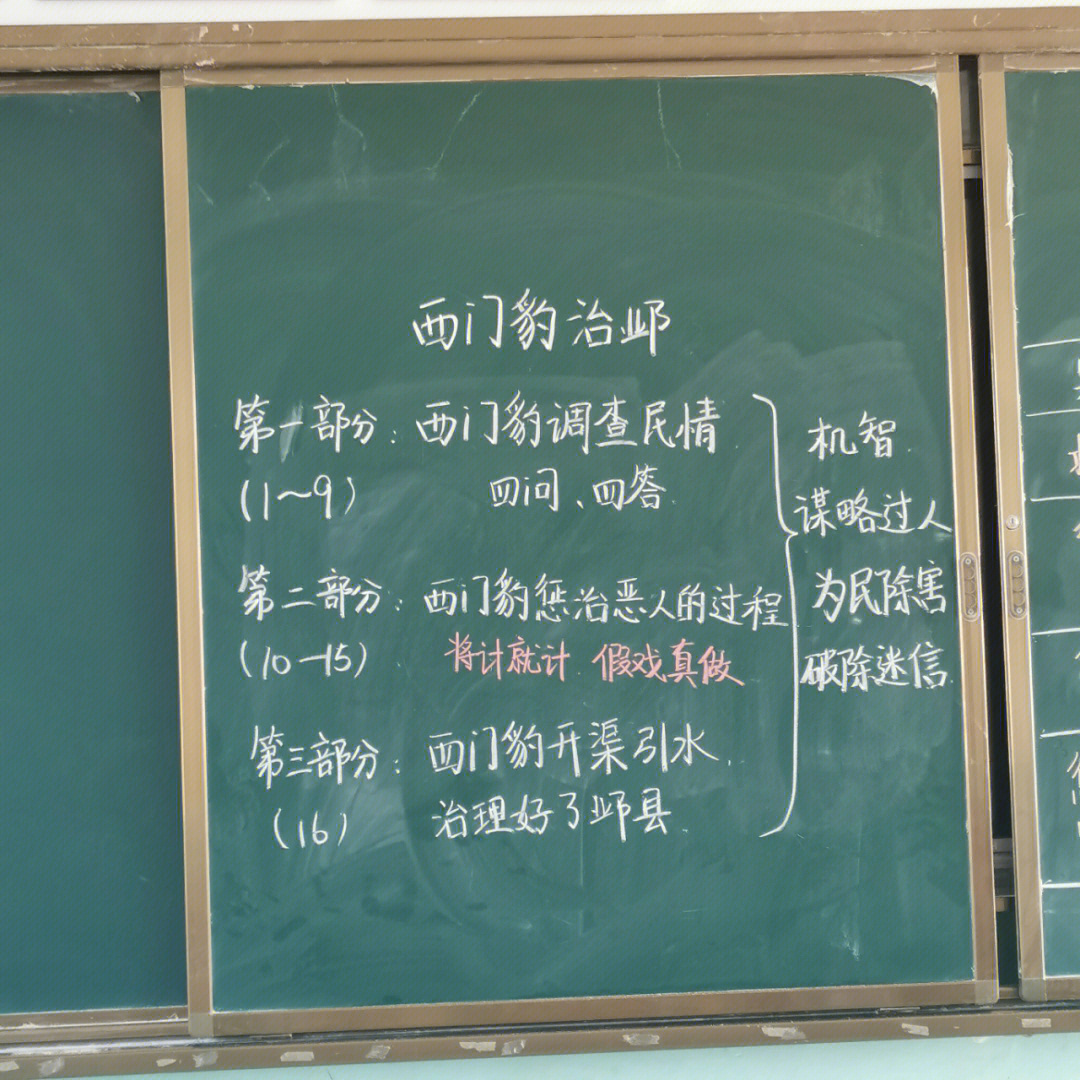 西门豹治邺
第一部分：西门豹调查民情
(1～9) 四问、四答
第二部分：西门豹惩治恶人的过程
(10—15) 将计就计 假戏真做
第三部分：西门豹开渠引水,
(16) 治理好了邺县
机智
谋略过人
为民除害
破除迷信